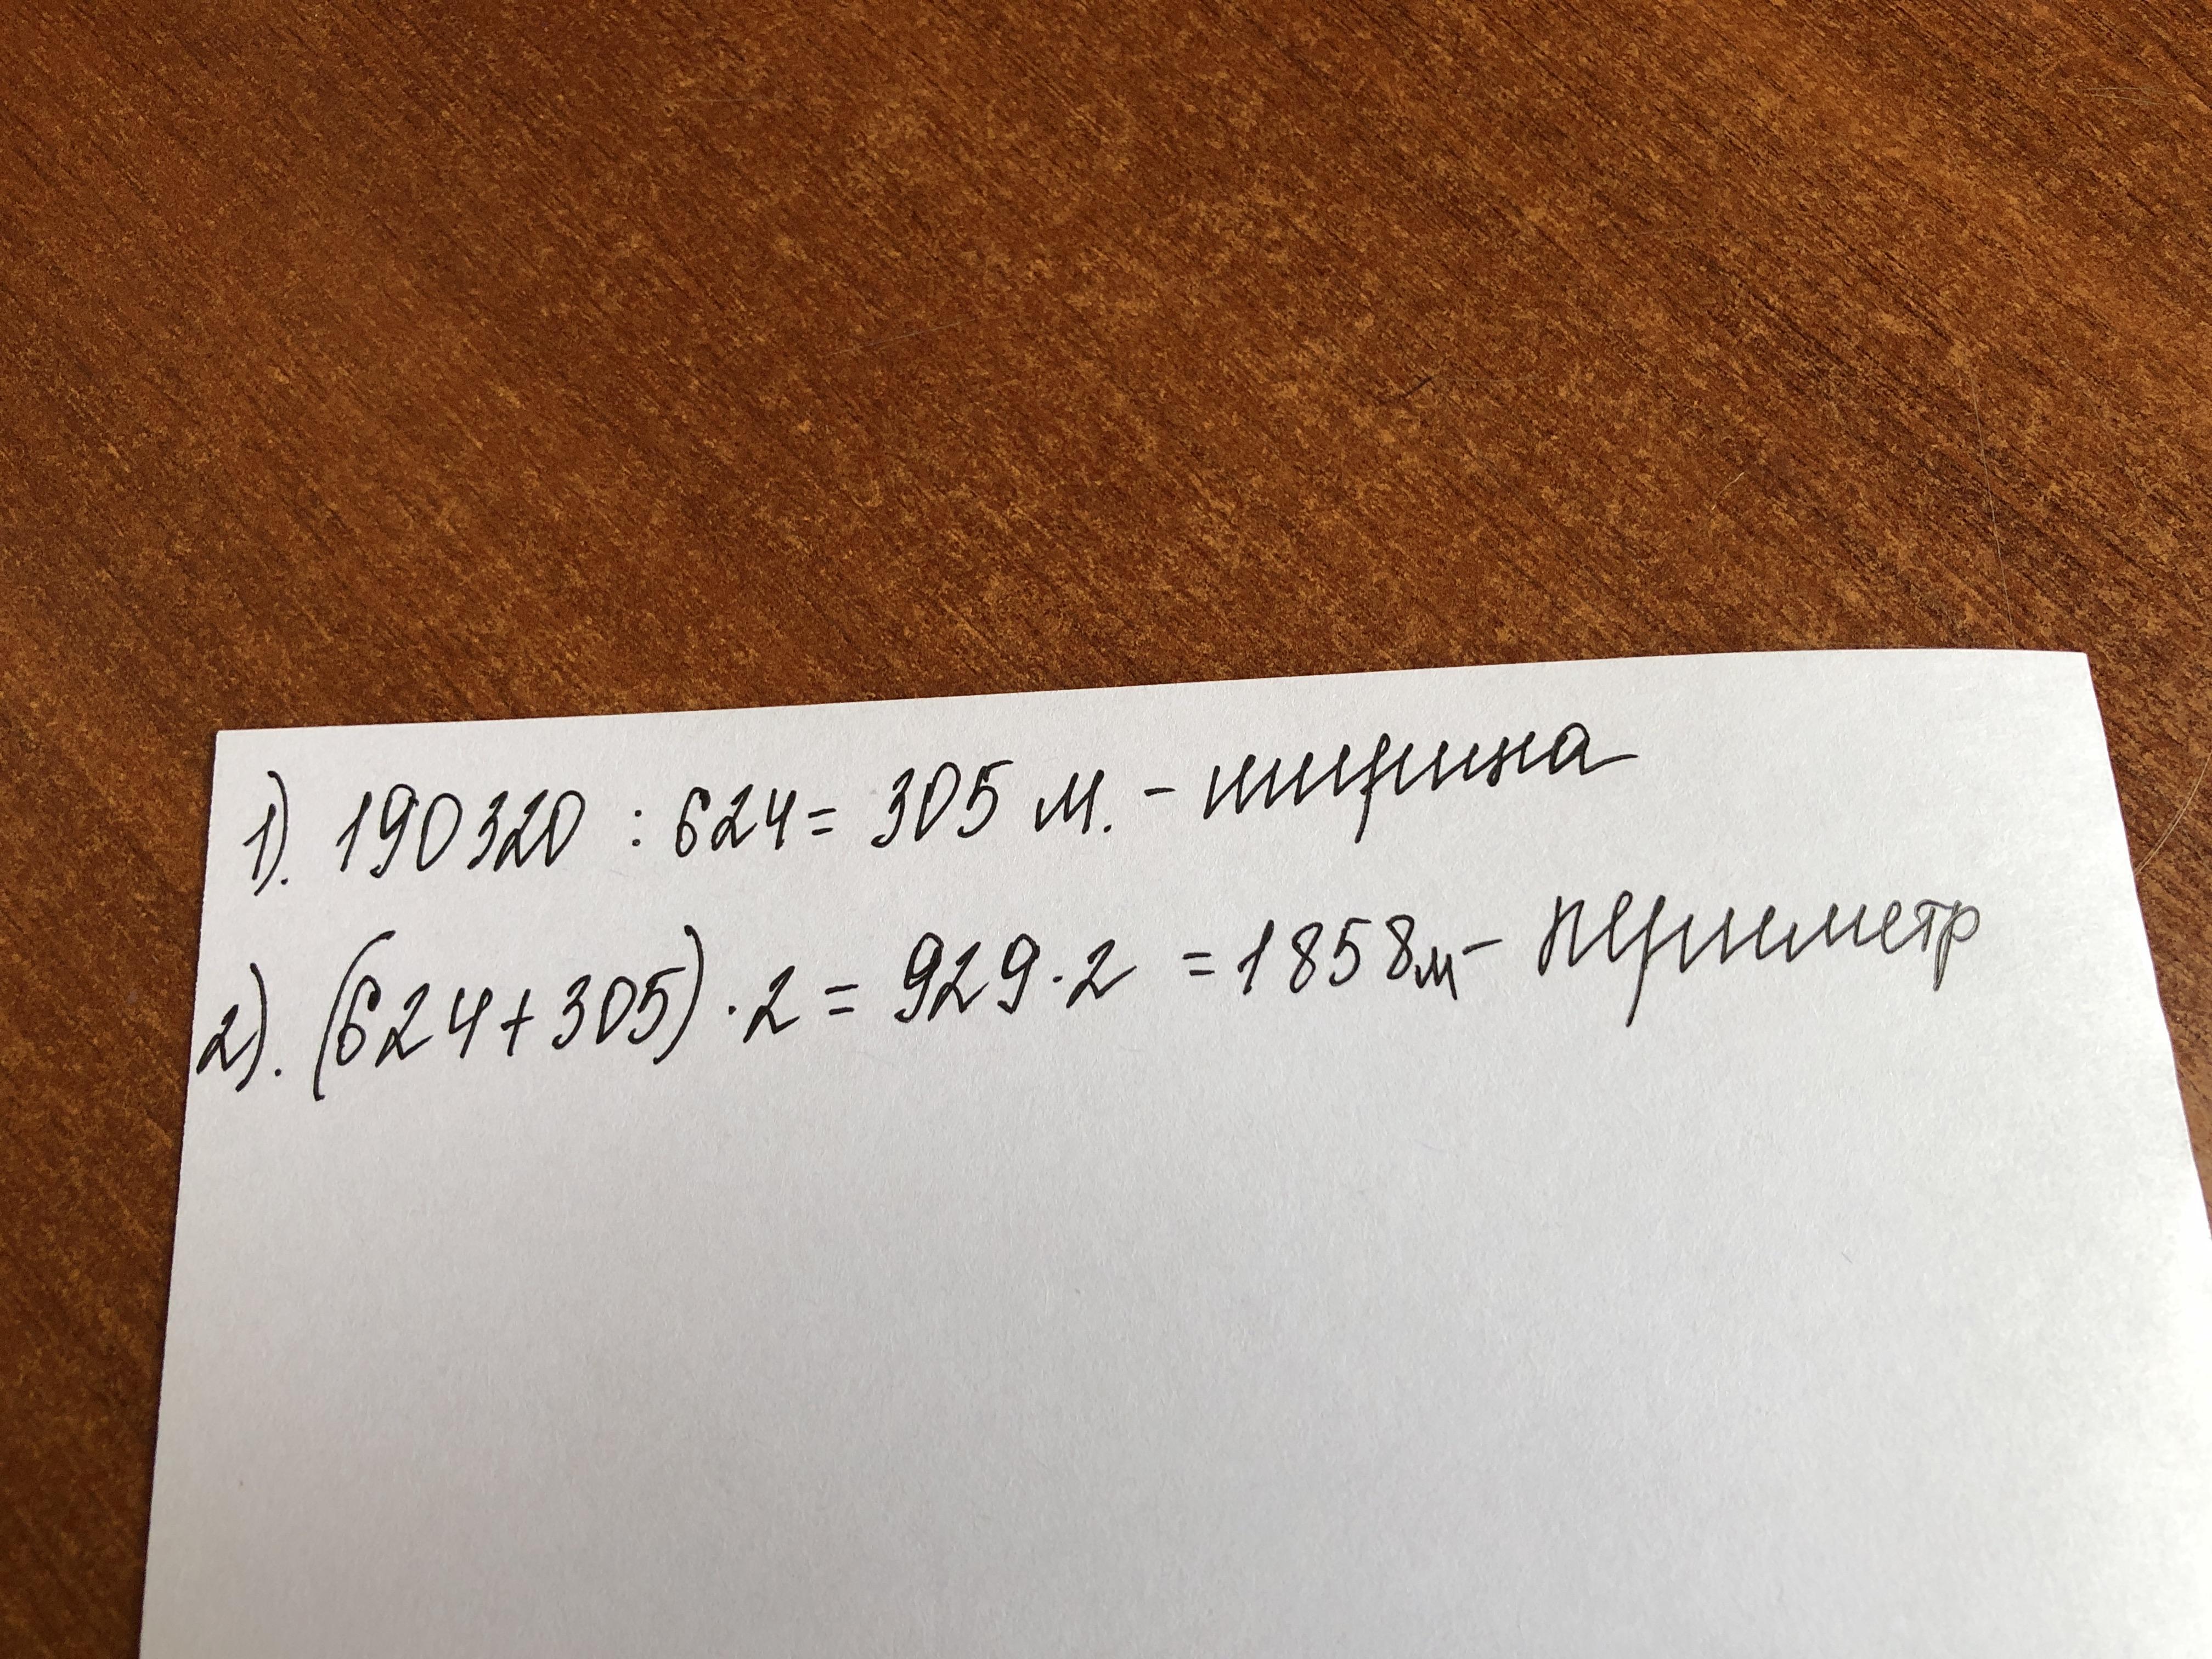 1). 190320 : 624 = 305 м. - ширина
2). (624+305) · 2 = 929 · 2 = 1858м - периметр